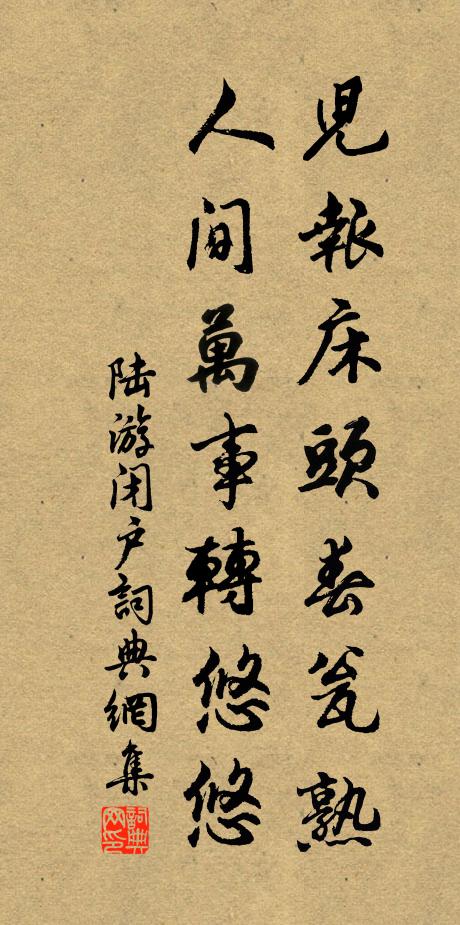 兒報床頭春瓮熟
人間萬事轉悠悠
陆游闭户詞典網集
詞典网印